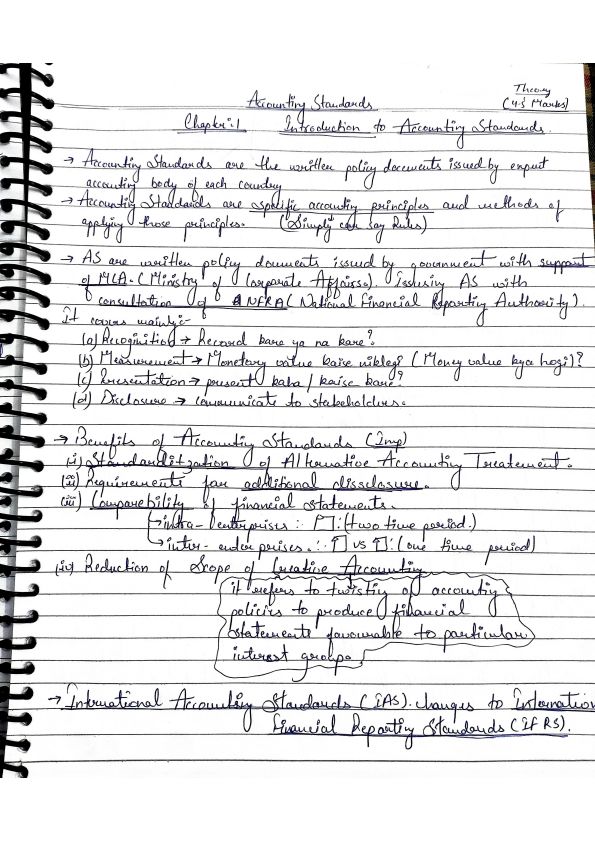 Theory
(4-5 Marks)
Accounting Standards
Chapter:1 Introduction to Accounting Standards.
→ Accounting Standards are the written policy documents issued by expert
accounting body of each country
→ Accounting Standards are specific accounting principles and methods of
applying those principles. (Simply can say Rules)
→ AS are written policy documents issued by government with support
of MCA. (Ministry of Corporate Affairs). Issuing AS with
consultation of NFRA (National Financial Reporting Authority).
It covers mainly:-
(a) Recoginition → Record kare ya na kare?
(b) Measurement → Monetory value kaise niklegi (Money value kya hogi)?
(c) Presentation → present kaha / kaise kare?
(d) Disclosure → communicate to stakeholders.
→ Benefits of Accounting Standards (Imp)
(i) Standardlitzation of Alternative Accounting Treatment.
(ii) Requirements for additional dissclosure.
(iii) Comparebility of financial statements.
→ intra-enterprises : (two time period.)
→ inter-enterprises. : vs : (one time period)
(iv) Reduction of Scope of Creative Accounting
it refers to twisting of accounting
policies to produce financial
statements favourable to particular
interest groups.
→ International Accounting Standards (IAS). changes to Internation
Financial Reporting Standards (IFRS).